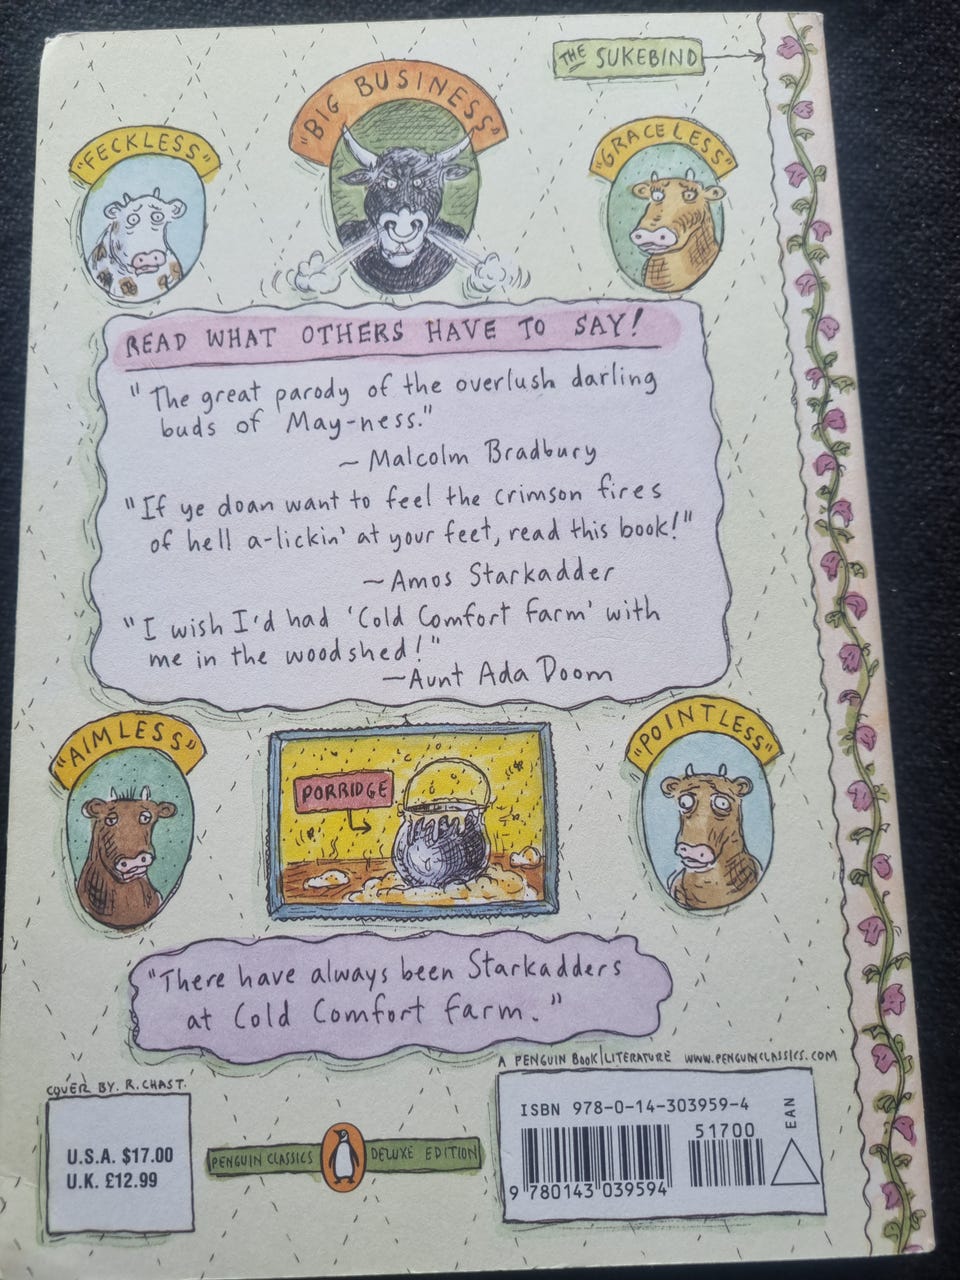 THE SUKEBIND
"BIG BUSINESS"
"FECKLESS"
"GRACELESS"
READ WHAT OTHERS HAVE TO SAY!
"The great parody of the overlush darling
buds of May-ness."
~ Malcolm Bradbury
"If ye doan want to feel the crimson fires
of hell a-lickin' at your feet, read this book!"
~Amos Starkadder
"I wish I'd had 'Cold Comfort Farm' with
me in the woodshed!"
—Aunt Ada Doom
"AIMLESS"
"POINTLESS"
PORRIDGE
"There have always been Starkadders
at Cold Comfort Farm."
A PENGUIN BOOK|LITERATURE WWW.PENGUINCLASSICS.COM
COVER BY. R. CHAST.
U.S.A. $17.00
U.K. £12.99
PENGUIN CLASSICS DELUXE EDITION
ISBN 978-0-14-303959-4
51700
EAN
9 780143 039594